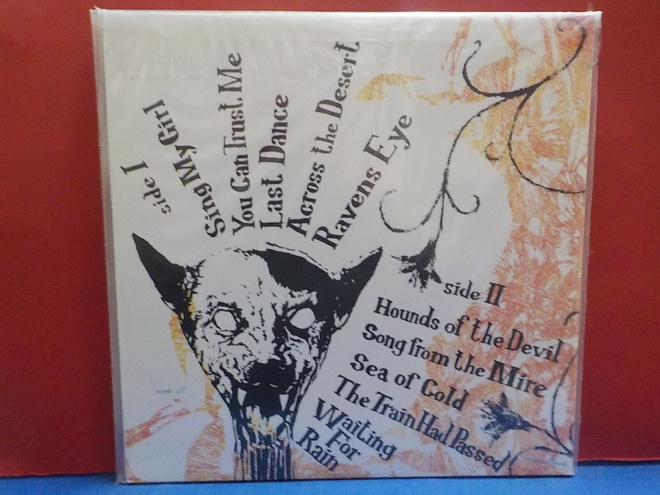 side I
Sing My Girl
You Can Trust Me
Last Dance
Across the Desert
Ravens Eye
side II
Hounds of the Devil
Song from the Mire
Sea of Gold
The Train Had Passed
Waiting
For
Rain